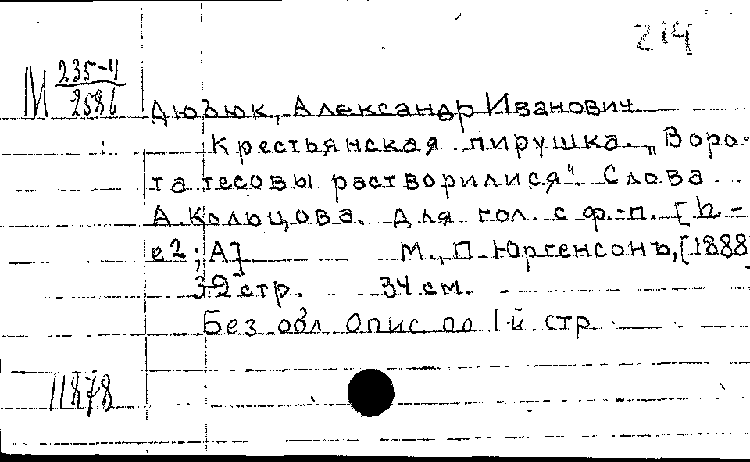 214
М 235-4
2586
Дюбюк, Александр Иванович
Крестьянская пирушка. „Воро-
та тесовы растворилися". Слова
А. Кольцова. Для гол. с ф.-п. [h-
e2; A] М., П. Юргенсонъ, [1888]
39 стр. 34 см.
Без обл. Опис. по 1-й стр.
11878